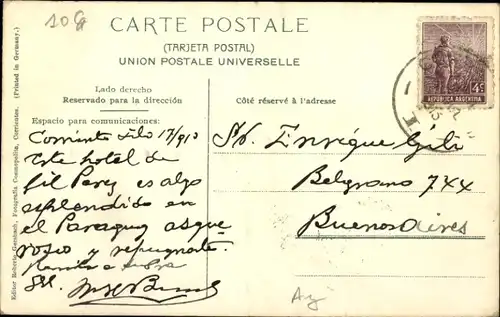 10 G
CARTE POSTALE
(TARJETA POSTAL)
UNION POSTALE UNIVERSELLE
Lado derecho
Reservado para la dirección
Côté réservé à l'adresse
Espacio para comunicaciones:
Corrientes Julio 17/913
Este hotel de
Gil Perez es algo
esplendido en
el Paraguay asque
roso y repugnante.
Sr. Enrique Gili
Belgrano 744
Buenos Aires
4c
REPUBLICA ARGENTINA
Editor Roberto Gersbach, Fotografía Cosmopolita, Corrientes. (Printed in Germany.)